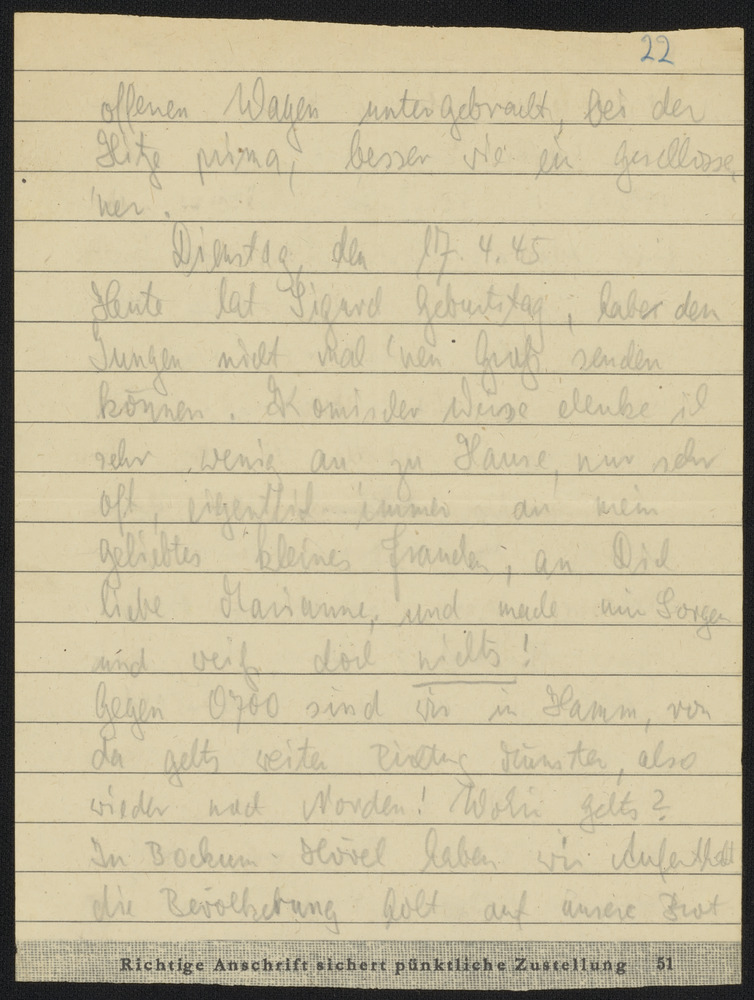 22
offenen Wagen untergebracht, bei der
Hitze prima, besser wie ein geschlosse
'ner.
Dienstag, den 17. 4. 45
Heute hat Sigurd Geburtstag, habe den
Jungen nicht mal 'nen Gruß senden
können. Komischer Weise denke ich
sehr wenig an zu Hause, nur sehr
oft, eigentlich immer an mein
geliebtes kleines Frauchen, an Dich
liebe Marianne, und mache mir Sorgen
und weiß doch nichts!
Gegen 0700 sind wir in Hamm, von
da gehts weiter Richtung Münster, also
wieder nach Norden! Wohin gehts?
In Bockum-Hövel haben wir Aufenthalt
die Bevölkerung holt auf unsere
Richtige Anschrift sichert pünktliche Zustellung 51